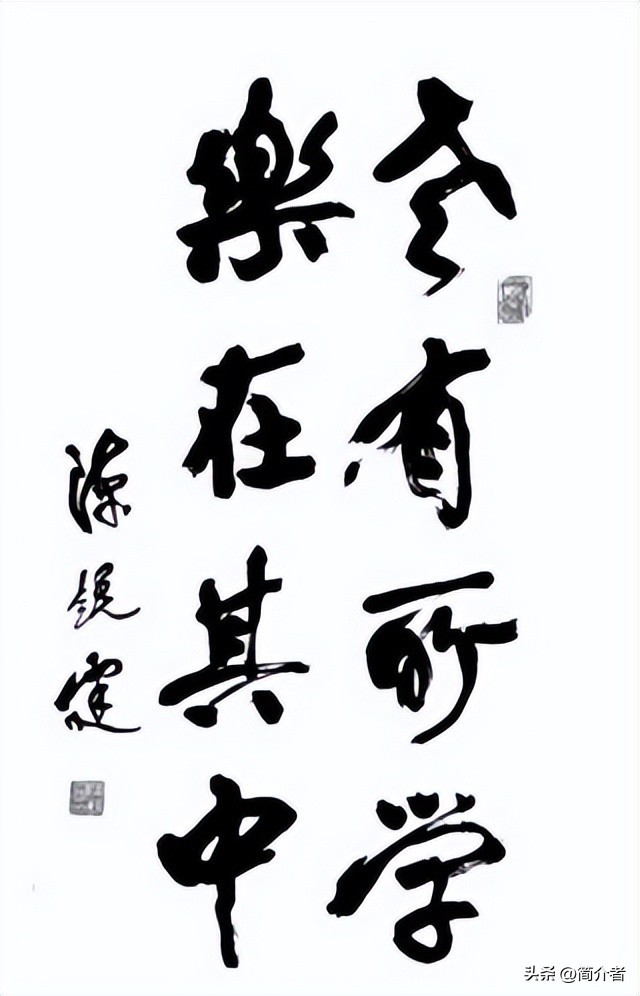 老有所学
樂在其中
陈锐霆
头条 @简介者